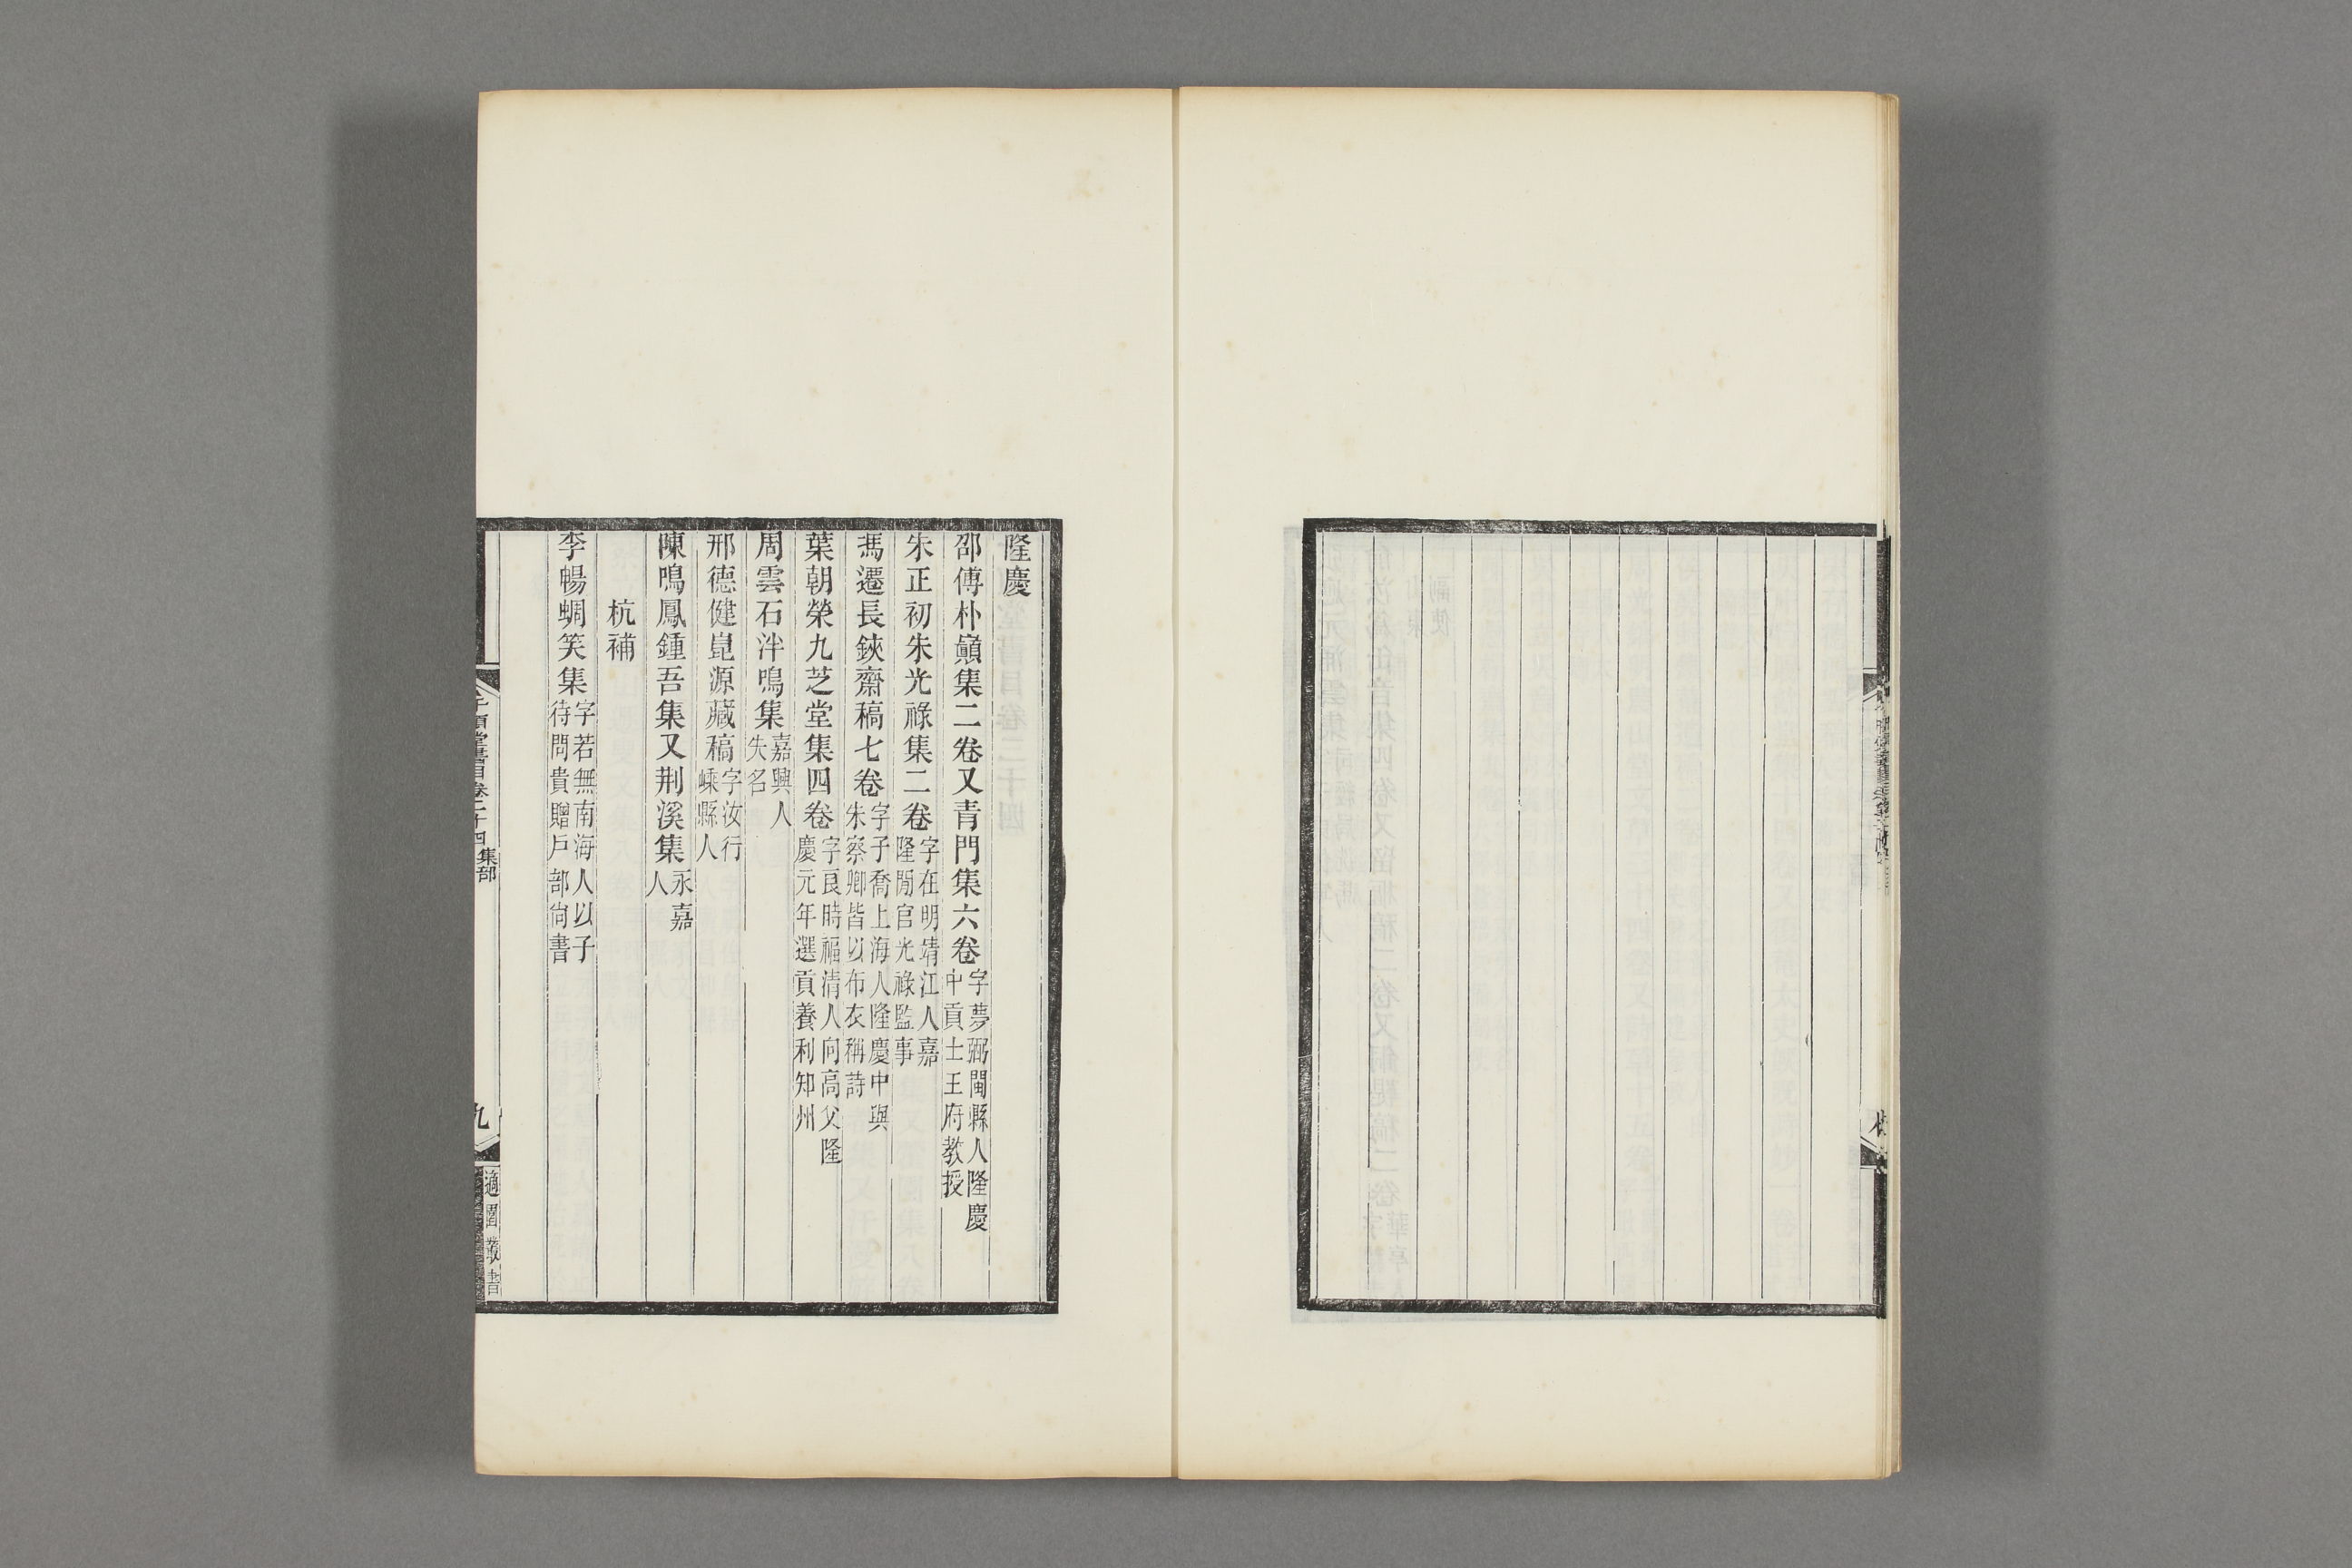 隆慶
邵傅朴巓集二卷又青門集六卷字夢弼閩縣人隆慶
中貢士王府教授
朱正初朱光祿集二卷字在明靖江人嘉
隆閒官光祿監事
馮遷長鋏齋稿七卷字子喬上海人隆慶中與
朱察卿皆以布衣稱詩
葉朝榮九芝堂集四卷字良時福清人向高父隆
慶元年選貢養利知州
周雲石泮鳴集嘉興人
失名
邢德健崑源藏稿字汝行
嵊縣人
陳鳴鳳鍾吾集又荆溪集永嘉
人
杭補
李暢蜩笑集字若無南海人以子
待問貴贈戶部尙書
千頃堂書目卷二十四 集部
九
適園叢書